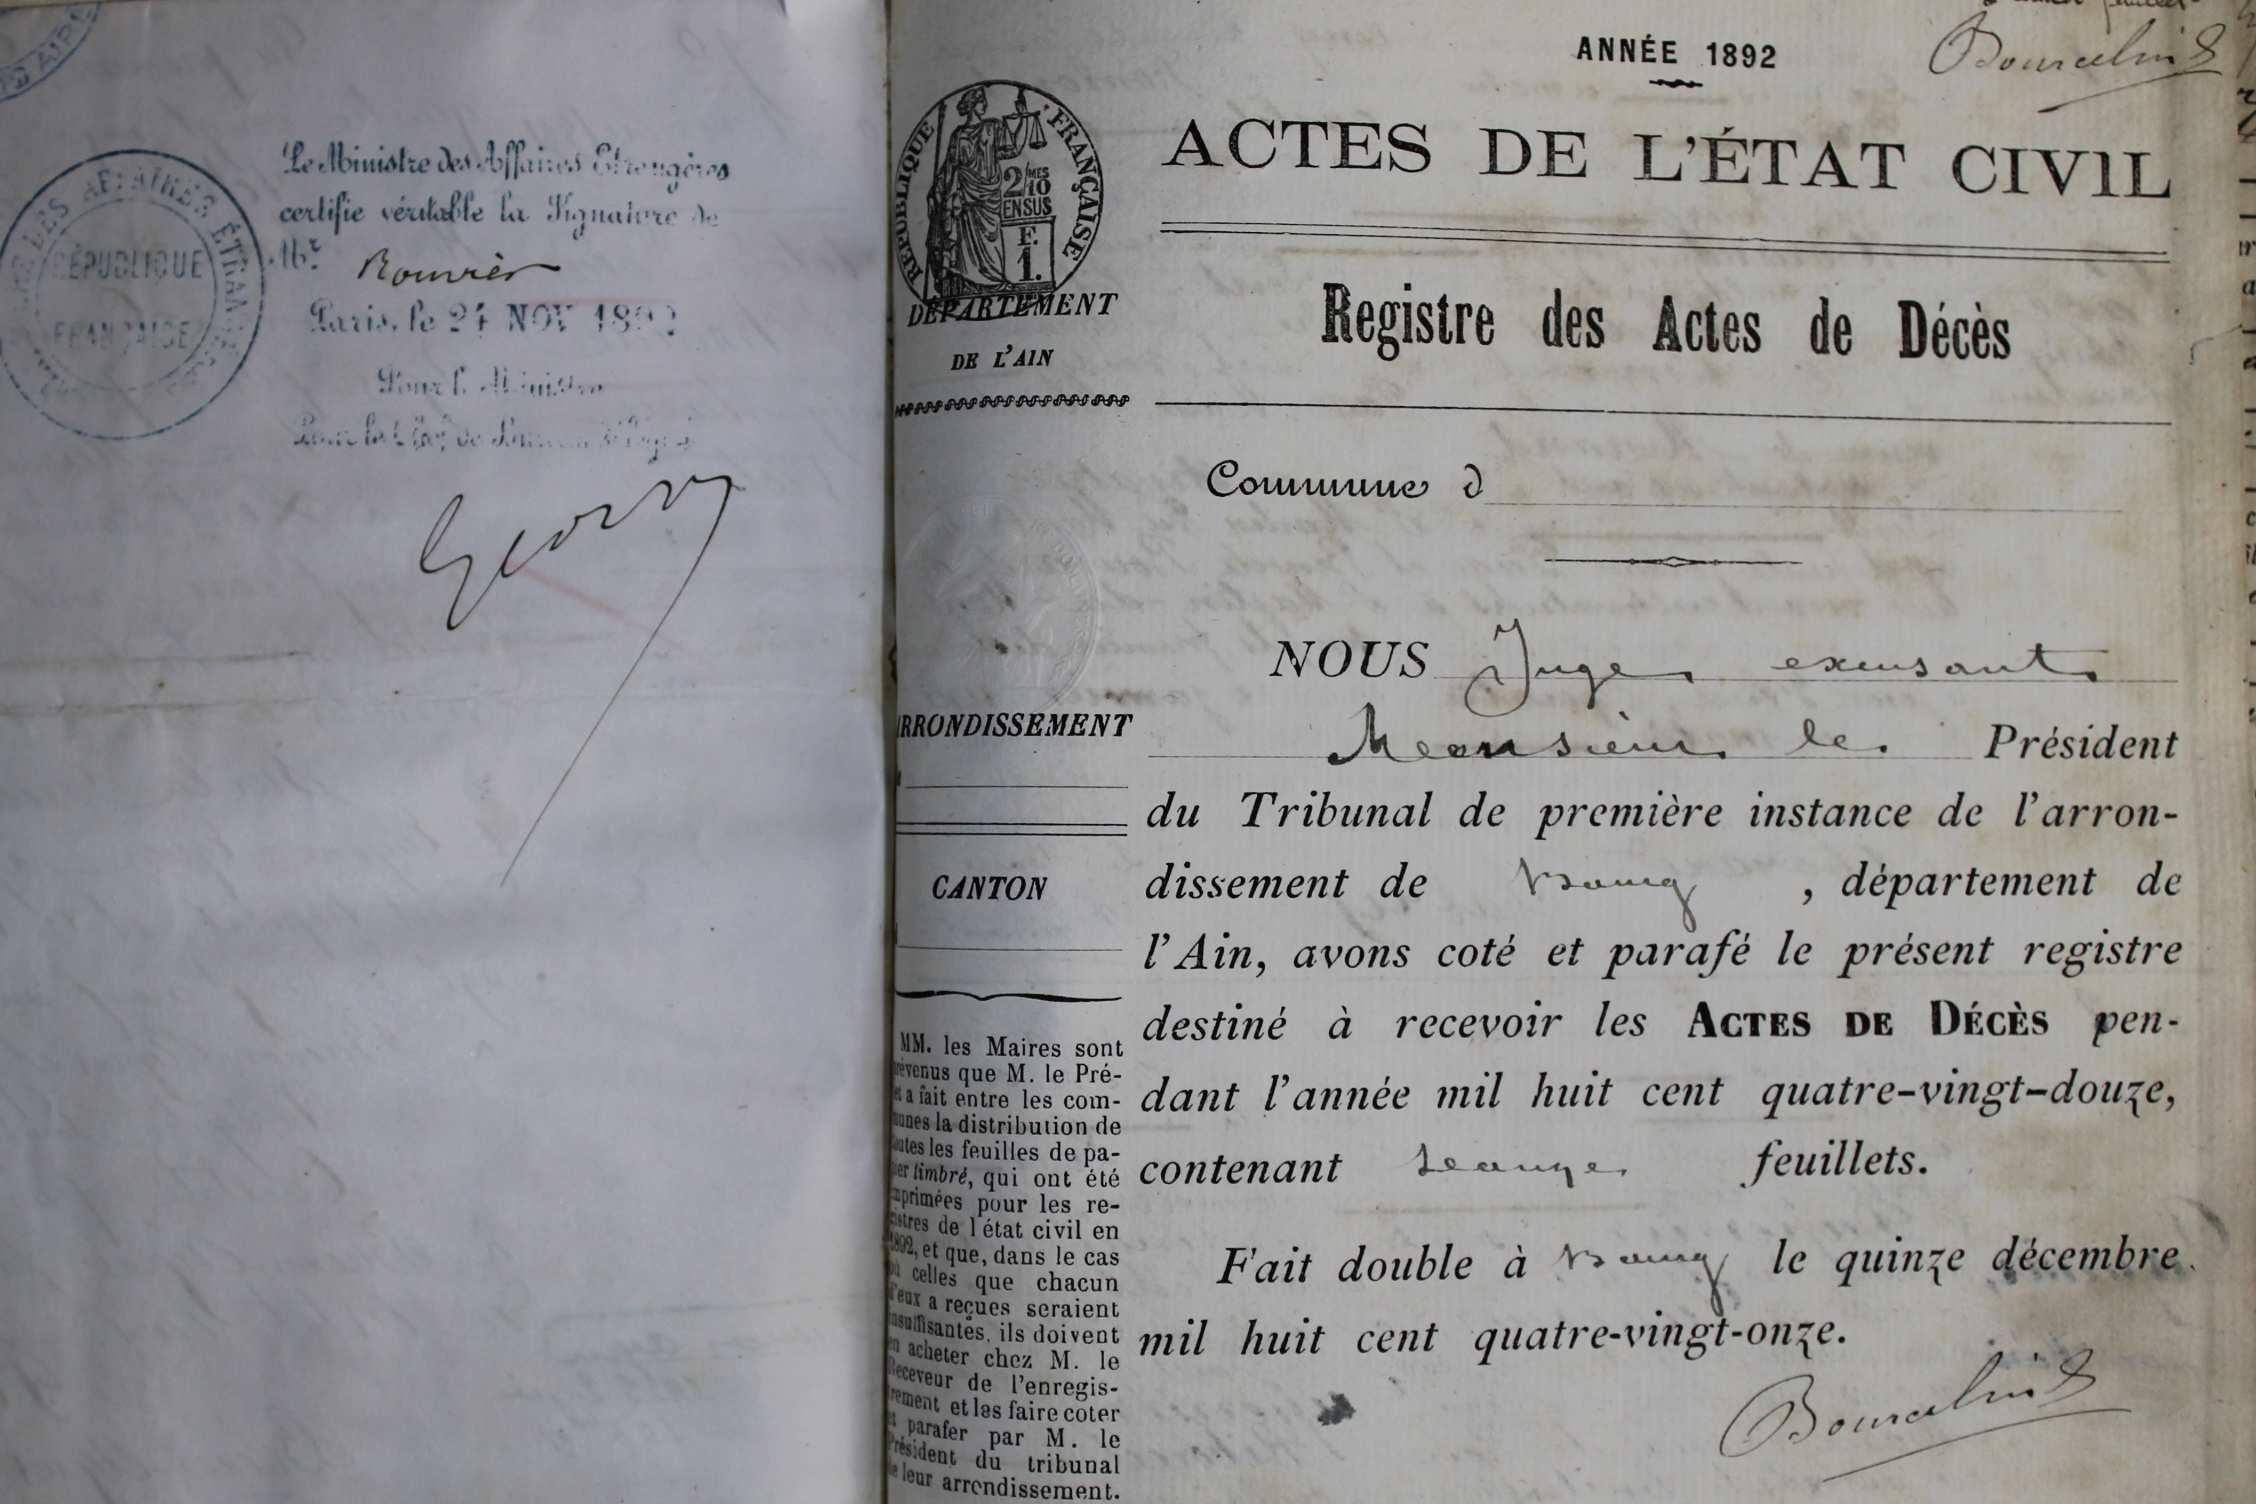 AFFAIRES ÉTRANGÈRES
RÉPUBLIQUE
FRANÇAISE
Le Ministre des Affaires Etrangères
certifie véritable la Signature de
Mr.
Paris, le 24 NOV 1892
Pour le Ministre
ANNÉE 1892
ACTES DE L'ÉTAT CIVIL
RÉPUBLIQUE FRANÇAISE
2/10MES
EN SUS
F.
1.
DÉPARTEMENT
DE L'AIN
Registre des Actes de Décès
Commune d
NOUS Juge
Monsieur le Président
du Tribunal de première instance de l'arron-
dissement de Bourg, département de
l'Ain, avons coté et parafé le présent registre
destiné à recevoir les ACTES DE DÉCÈS pen-
dant l'année mil huit cent quatre-vingt-douze,
contenant feuillets.
Fait double à Bourg le quinze décembre
mil huit cent quatre-vingt-onze.
ARRONDISSEMENT
CANTON
MM. les Maires sont
prévenus que M. le Pré-
fet a fait entre les com-
munes la distribution de
toutes les feuilles de pa-
pier timbré, qui ont été
imprimées pour les re-
gistres de l'état civil en
1892, et que, dans le cas
où celles que chacun
d'eux a reçues seraient
insuffisantes, ils doivent
en acheter chez M. le
Receveur de l'enregis-
trement et les faire coter
et parafer par M. le
Président du tribunal
de leur arrondissement.